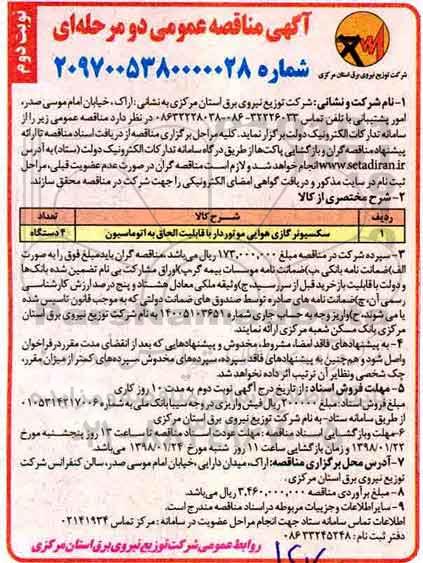 نوبت دوم
آگهی مناقصه عمومی دو مرحله‌ای
شماره ۲۰۹۷۰۰۵۳۸۰۰۰۰۰۲۸
شرکت توزیع نیروی برق استان مرکزی
۱- نام شرکت و نشانی: شرکت توزیع نیروی برق استان مرکزی به نشانی: اراک، خیابان امام موسی صدر،
امور پشتیبانی با تلفن تماس ۳۲۲۲۶۰۳۳-۰۸۶ ۰۸۶۳۲۲۲۸۰۳۸ در نظر دارد مناقصه عمومی زیر را از
سامانه تدارکات الکترونیک دولت برگزار نماید. کلیه مراحل برگزاری مناقصه از دریافت اسناد مناقصه تا ارائه
پیشنهاد مناقصه گران و بازگشایی پاکت‌ها از طریق درگاه سامانه تدارکات الکترونیک دولت (ستاد) به آدرس
www.setadiran.ir انجام خواهد شد و لازم است مناقصه گران در صورت عدم عضویت قبلی، مراحل
ثبت نام در سایت مذکور و دریافت گواهی امضای الکترونیکی را جهت شرکت در مناقصه محقق سازند.
۲- شرح مختصری از کالا
ردیف شرح کالا تعداد
۱ سکسیونر گازی هوایی موتوردار با قابلیت الحاق به اتوماسیون ۴ دستگاه
۳- سپرده شرکت در مناقصه مبلغ ۱۷۳,۰۰۰,۰۰۰ ریال می‌باشد. مناقصه گران باید مبلغ فوق را به صورت
الف) ضمانت نامه بانکی ب) ضمانت نامه موسسات بیمه گر پ) اوراق مشارکت بی نام تضمین شده بانک‌ها
و دولت با قابلیت بازخرید قبل از سررسید، ج) وثیقه ملکی معادل هشتاد و پنج درصد ارزش کارشناسی
رسمی آن، چ) ضمانت نامه های صادره توسط صندوق های ضمانت دولتی که به موجب قانون تاسیس شده
یا می‌شوند، ح) واریز وجه به حساب جاری شماره ۱۴۰۰۵۱۰۳۶۵۱ به نام شرکت توزیع نیروی برق استان
مرکزی بانک مسکن شعبه مرکزی ارائه نمایند.
۴- به پیشنهادهای فاقد امضا، مشروط، مخدوش و پیشنهادهایی که بعد از انقضای مدت مقرر در فراخوان
واصل شود و هم‌چنین به پیشنهادهای فاقد سپرده، سپرده‌های مخدوش، سپرده‌های کمتر از میزان مقرر،
چک شخصی و نظایر آن ترتیب اثر داده نخواهد شد.
۵- مهلت فروش اسناد: از تاریخ درج آگهی نوبت دوم به مدت ۱۰ روز کاری
مبلغ فروش اسناد: مبلغ ۲۰۰۰۰۰ ریال فیش واریزی بر وجه سیبا بانک ملی به شماره ۰۱۰۵۳۱۴۳۱۷۰۰۶
از طریق سامانه ستاد- به نام شرکت توزیع نیروی برق استان مرکزی
۶- مهلت و بازگشایی اسناد مناقصه: مهلت عودت اسناد مناقصه ساعت ۱۳ روز پنجشنبه مورخ
۱۳۹۸/۰۱/۲۲ و زمان بازگشایی ساعت ۱۱ روز شنبه مورخ ۱۳۹۸/۰۱/۲۴ می‌باشد.
۷- آدرس محل برگزاری مناقصه: اراک، میدان دارایی، خیابان امام موسی صدر، سالن کنفرانس شرکت
توزیع نیروی برق استان مرکزی.
۸- مبلغ برآوردی مناقصه ۳,۴۶۰,۰۰۰,۰۰۰ ریال می‌باشد.
۹- سایر اطلاعات و جزییات مربوطه در اسناد مناقصه مندرج است.
اطلاعات تماس سامانه ستاد جهت انجام مراحل عضویت در سامانه: مرکز تماس ۰۲۱۴۱۹۳۴
دفتر ثبت نام: ۰۸۶۳۳۲۴۵۲۴۸
روابط عمومی شرکت توزیع نیروی برق استان مرکزی